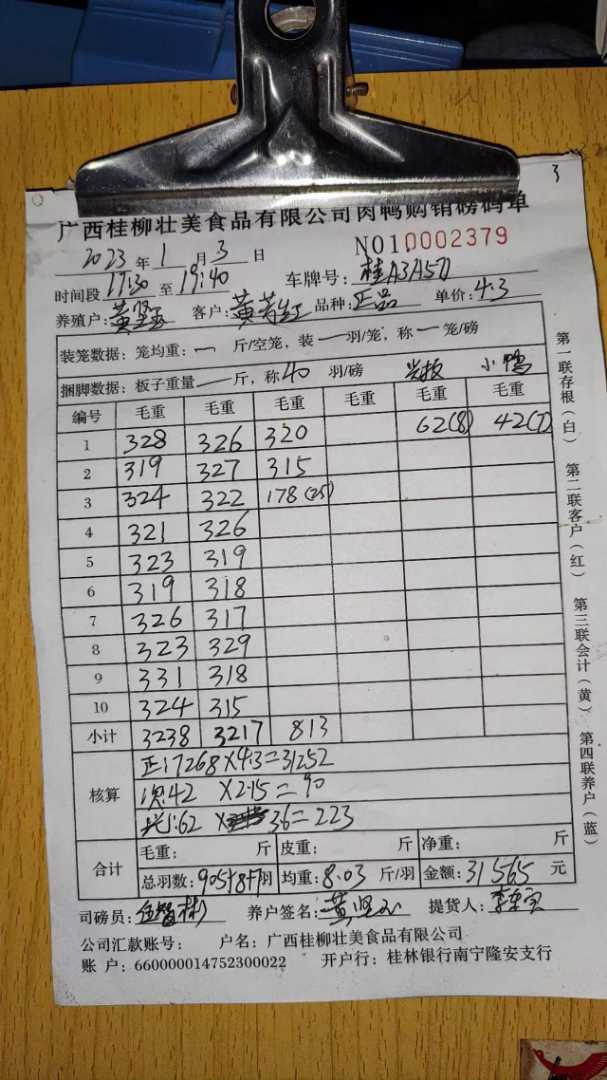 3
广西桂柳壮美食品有限公司肉鸭购销磅码单
2023 年 1 月 3 日 NO10002379
时间段 17:30 至 19:40 车牌号: 桂A3A57J
养殖户: 黄坚玉 客户: 黄 品种: 正品 单价: 4.3
装笼数据: 笼均重: 一 斤/空笼, 装 一 羽/笼, 称 一 笼/磅
捆脚数据: 板子重量 一 斤, 称 40 羽/磅 光板 小鸭
编号 毛重 毛重 毛重 毛重 毛重 毛重
1 328 326 320 62(8) 42(7)
2 319 327 315
3 324 322 178(25)
4 321 326
5 323 319
6 319 318
7 326 317
8 323 329
9 331 318
10 324 315
小计 3238 3217 813
核算
正:7268×4.3=31252
次:42 ×2.15=90
光:62 × 3.6=223
合计
毛重: 斤 皮重: 斤 净重: 斤
总羽数: 905+8+7羽 均重: 8.03 斤/羽 金额: 31565 元
司磅员: 养户签名: 黄坚玉 提货人:
公司汇款账号: 户名: 广西桂柳壮美食品有限公司
账 户: 660000014752300022 开户行: 桂林银行南宁隆安支行
第一联存根(白) 第二联客户(红) 第三联会计(黄) 第四联养户(蓝)